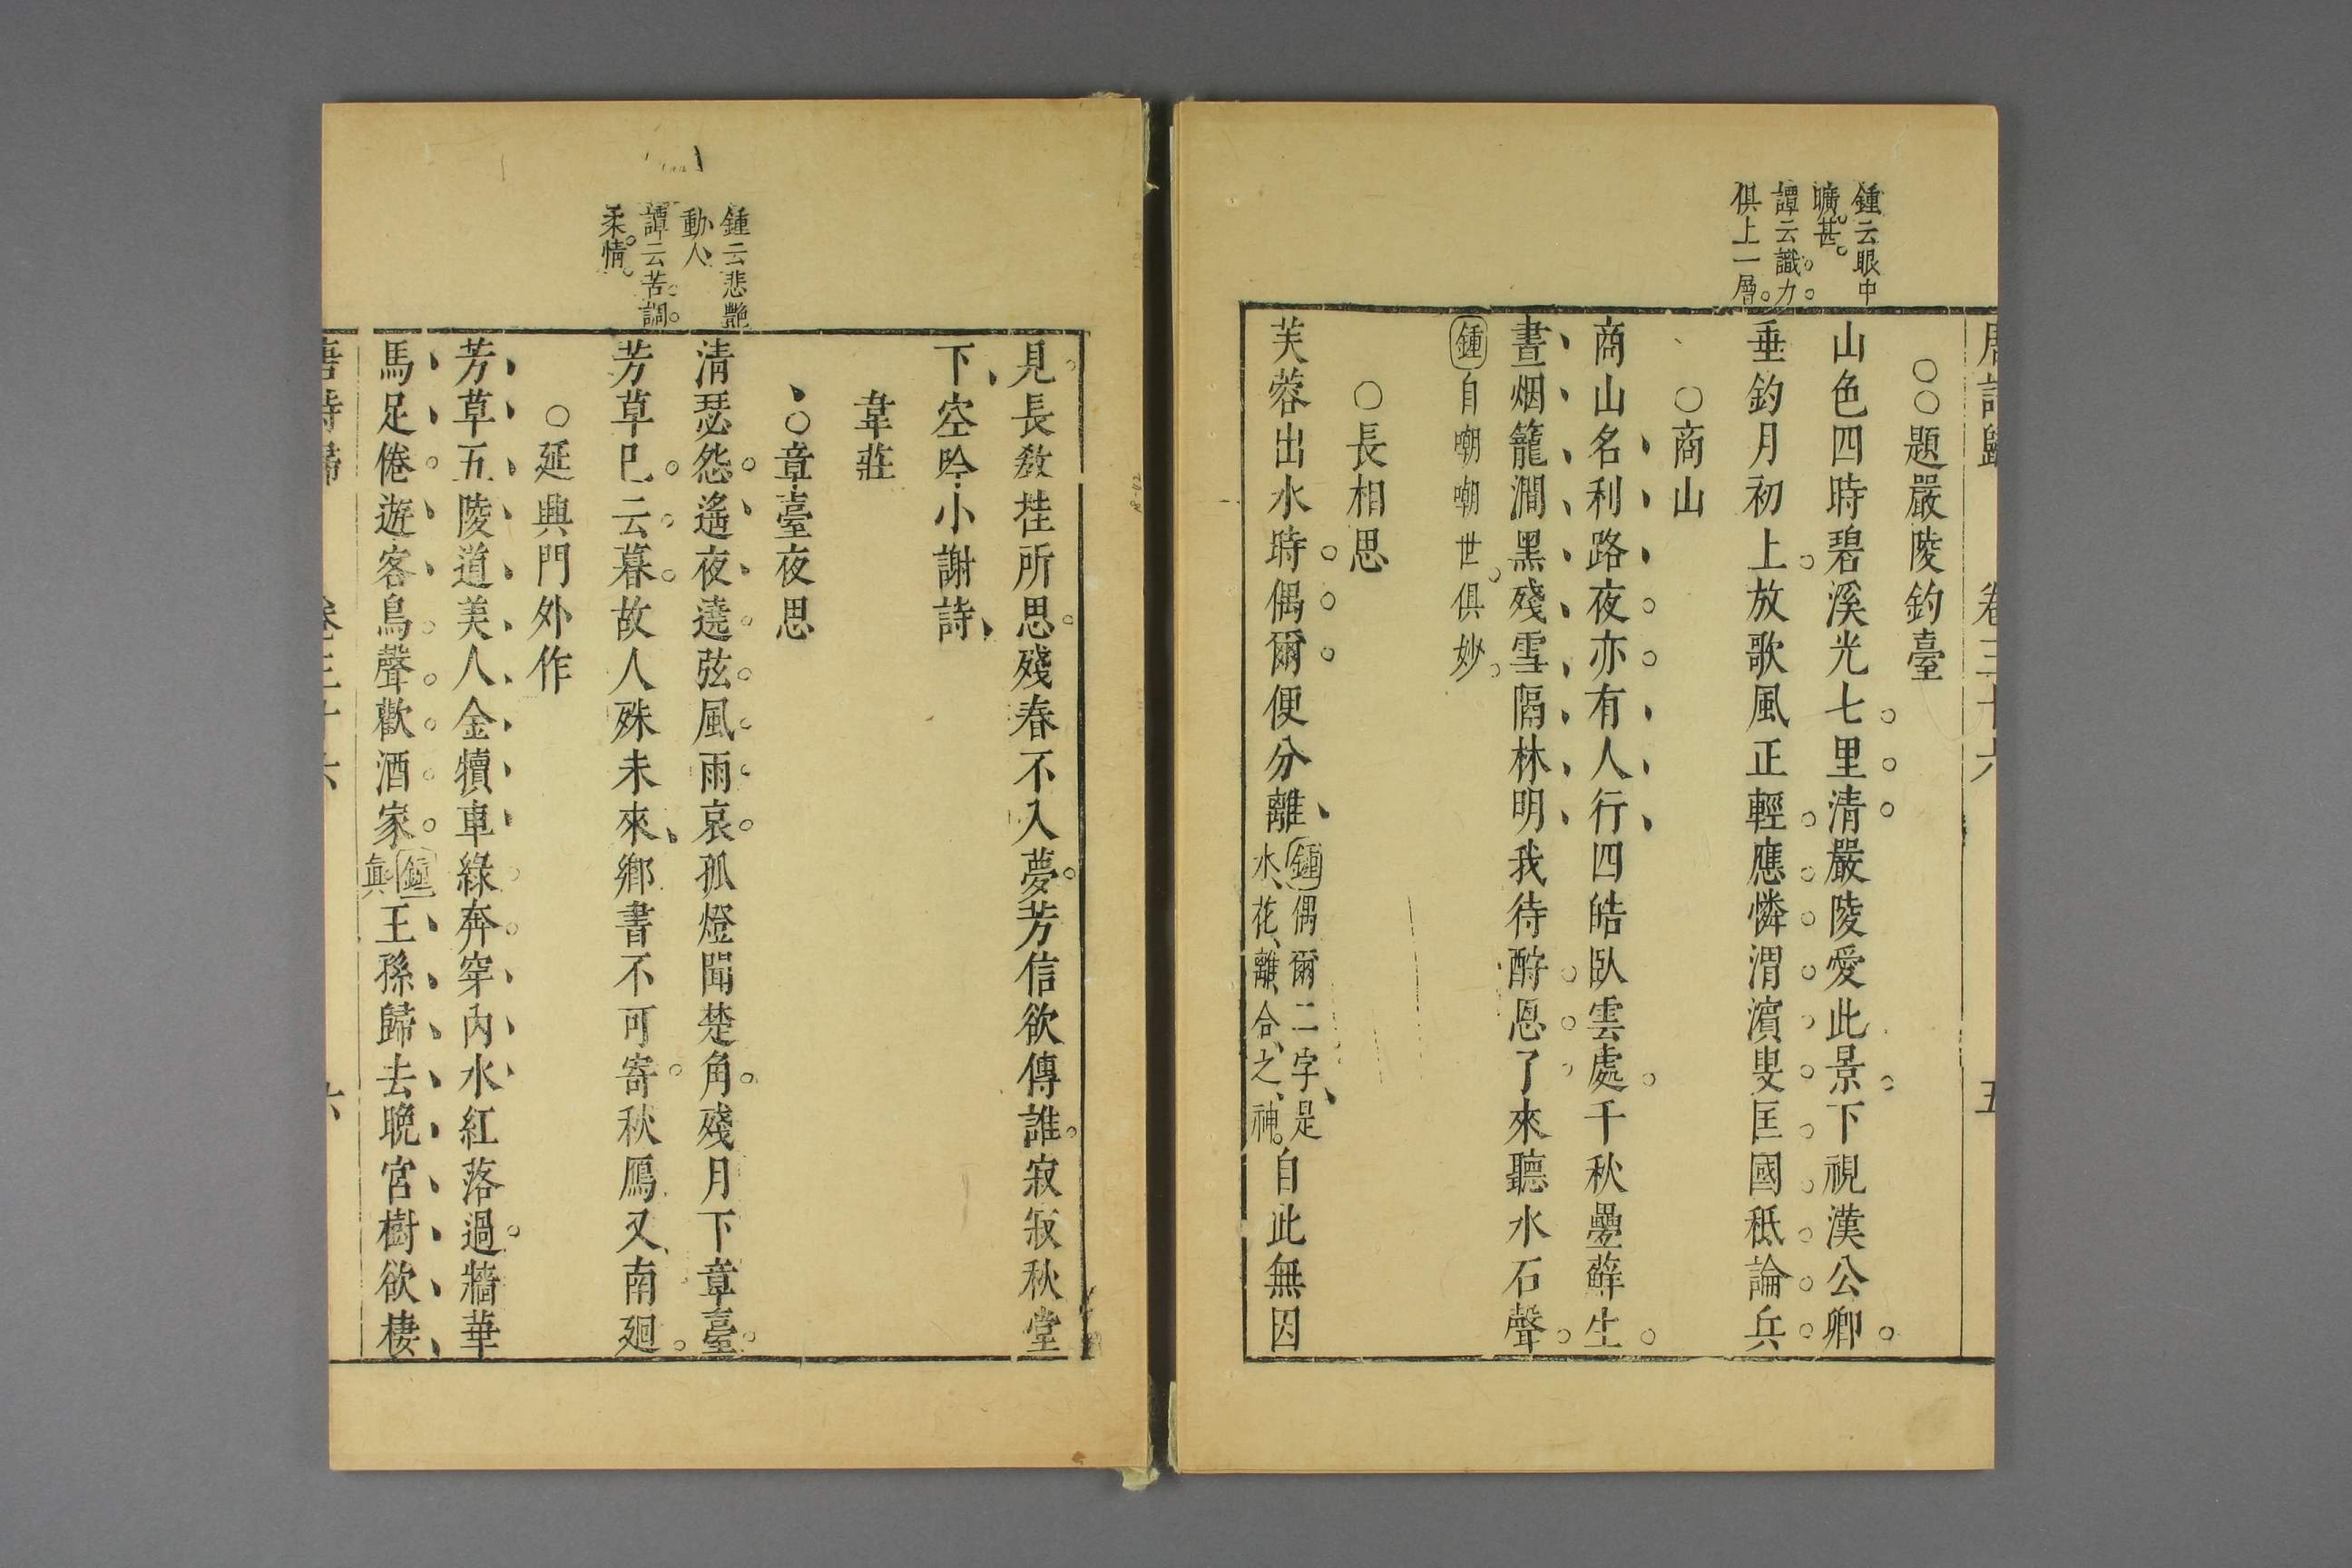 唐詩歸 卷三十六 五
鍾云眼中
曠甚
譚云識力
俱上一層
○○題嚴陵釣臺
山色四時碧溪光七里清嚴陵愛此景下視漢公卿
垂釣月初上放歌風正輕應憐渭濱叟匡國秪論兵
○商山
商山名利路夜亦有人行四皓臥雲處千秋疊蘚生
晝烟籠澗黑殘雪隔林明我待酧恩了來聽水石聲
鍾自嘲嘲世俱妙
○長相思
芙蓉出水時偶爾便分離鍾偶爾二字是水花離合之神自此無因
鍾云悲艷
動人
譚云苦調
柔情
見長教挂所思殘春不入夢芳信欲傳誰寂寂秋堂
下空吟小謝詩
韋莊
○章臺夜思
清瑟怨遙夜遶弦風雨哀孤燈聞楚角殘月下章臺
芳草已云暮故人殊未來鄉書不可寄秋鴈又南廻
○延興門外作
芳草五陵道美人金犢車綠奔穿內水紅落過牆華
馬足倦遊客鳥聲歡酒家鍾眞王孫歸去晚宮樹欲棲
唐詩歸 卷三十六 六